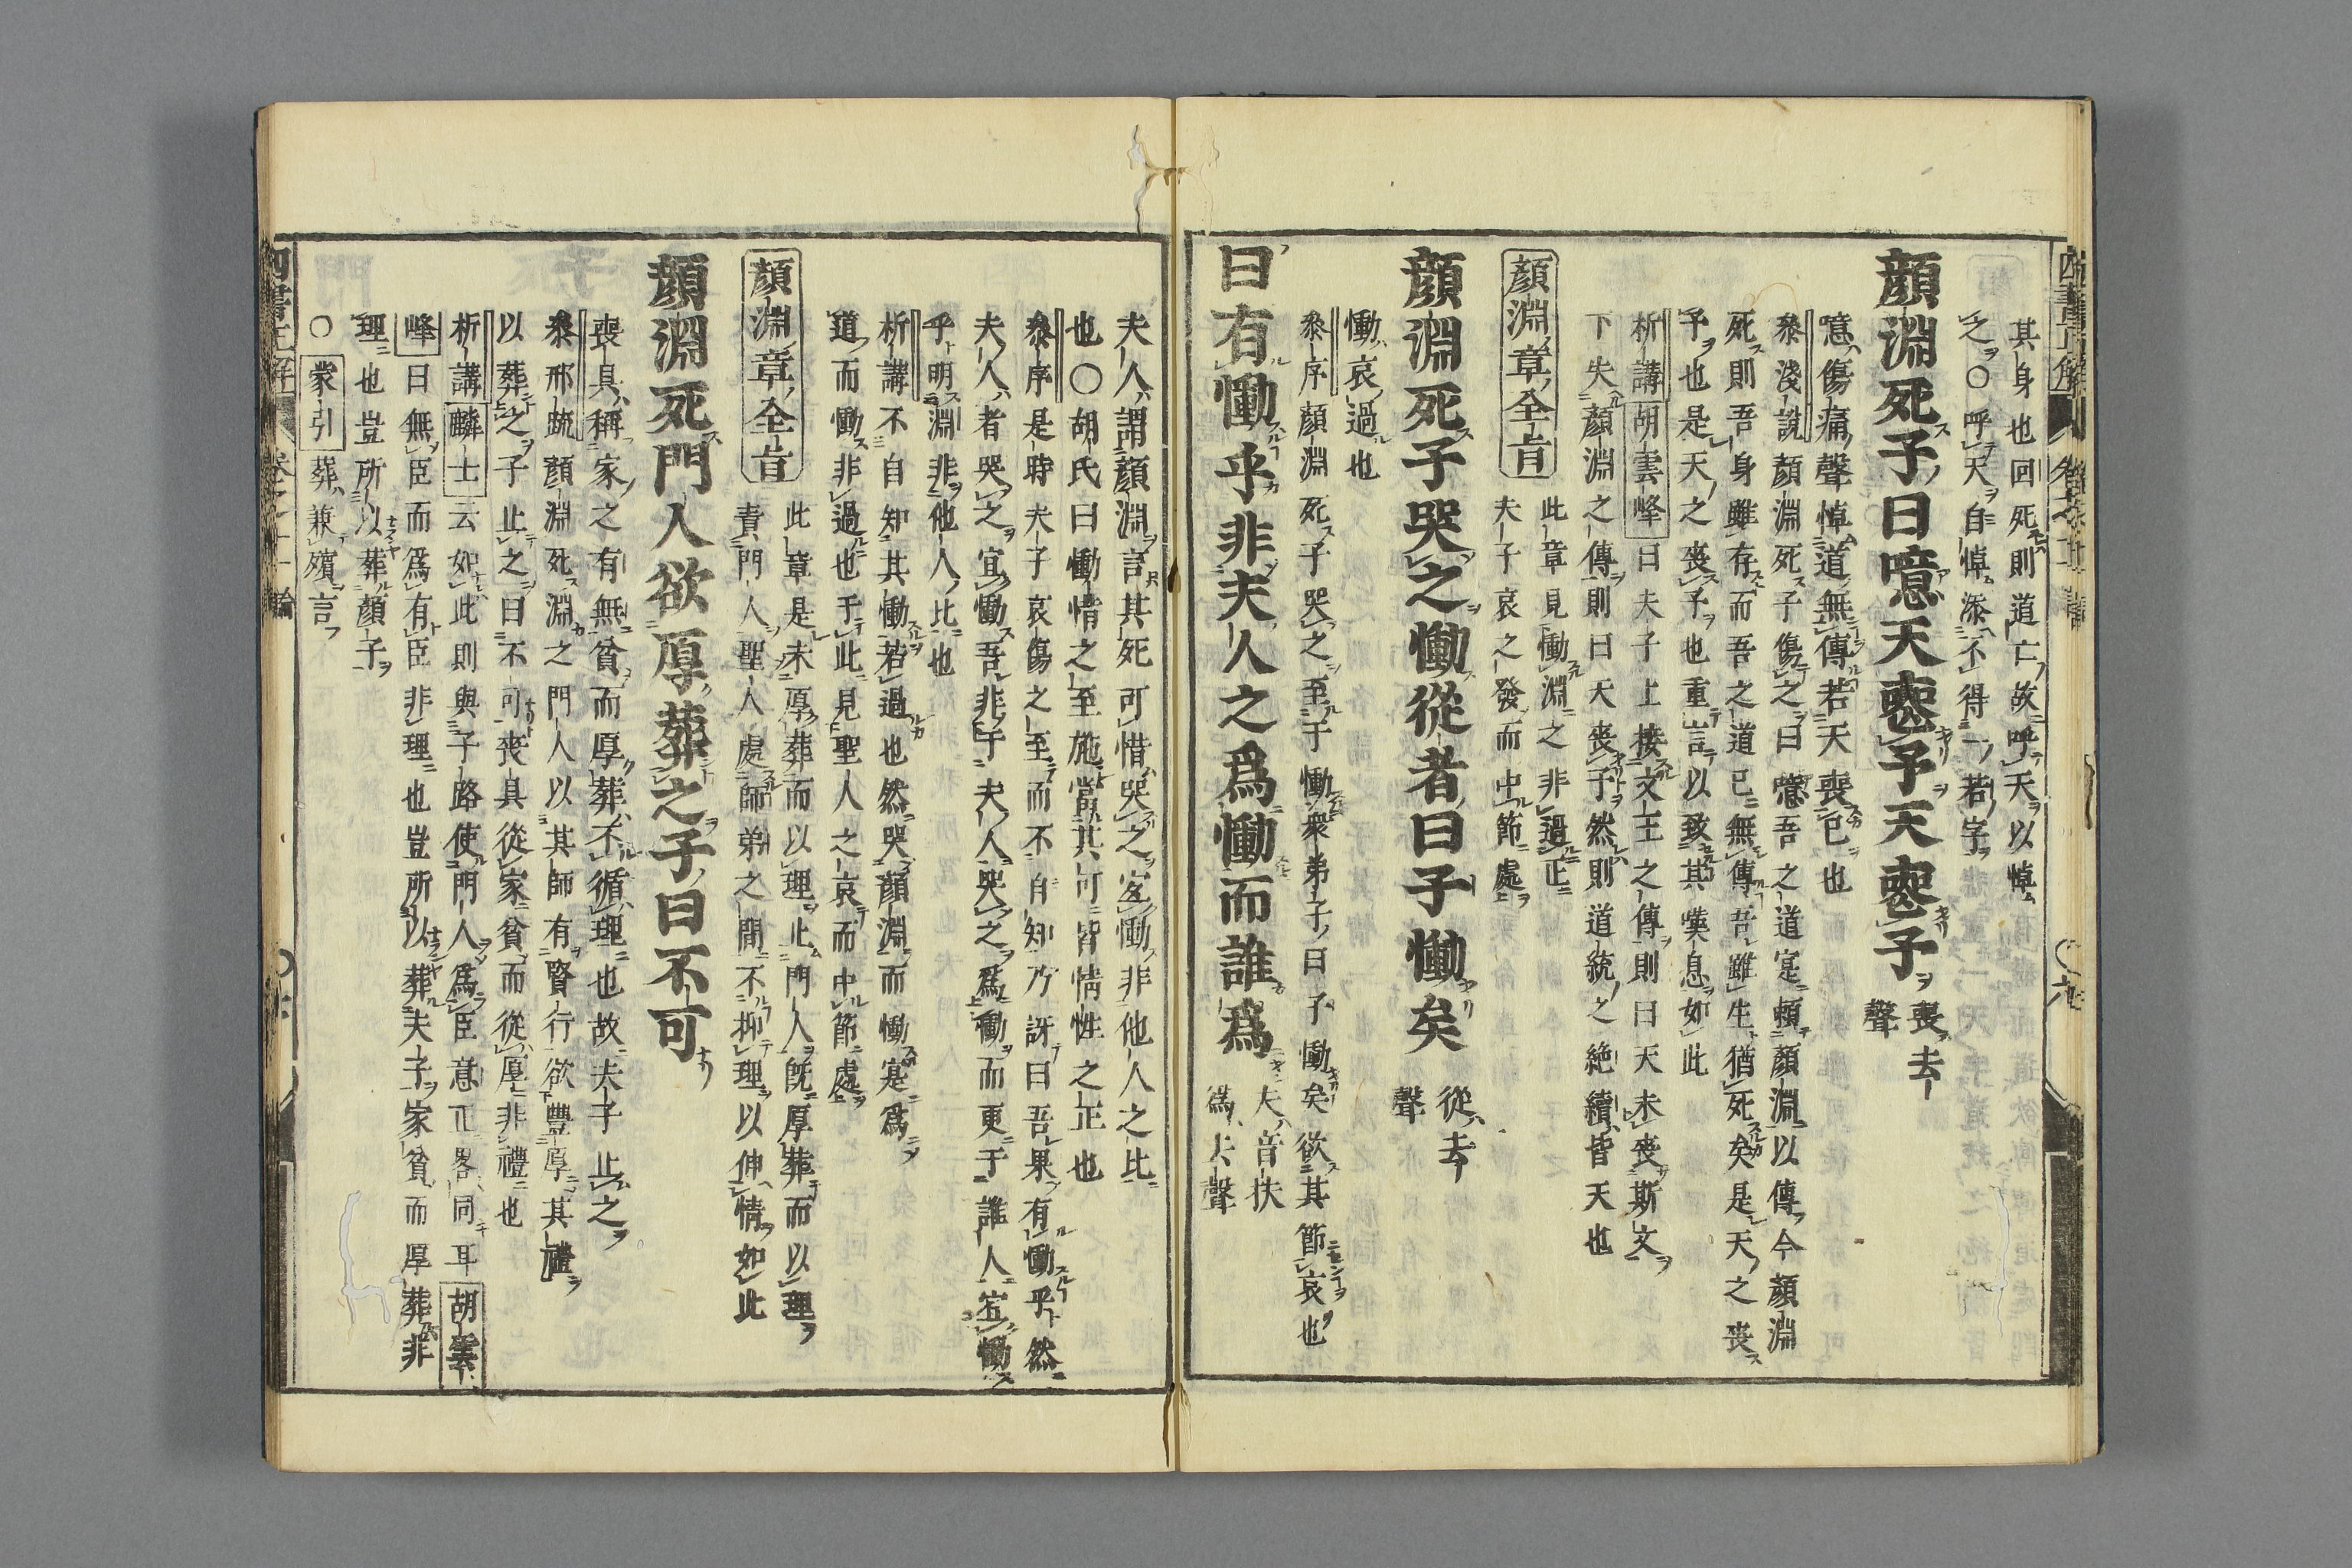 其身也回死則道亡故呼天以悼
之〇呼天自悼添不得一若字
顏淵死子曰噫天喪予天喪予
喪去
聲
噫傷痛聲悼道無傳若天喪已也
叅淺說顏淵死子傷之曰噫吾之道寔頼顏淵以傳今顏淵
死則吾身雖存而吾之道已無傳吾雖生猶死矣是天之喪
予也是天之喪予也重言以致其嘆息如此
析講胡雲峰曰夫子上接文王之傳則曰天未喪斯文
下失顏淵之傳則曰天喪予然則道統之絶續皆天也
顏淵章全旨
此章見慟淵之非過正
夫子哀之發而中節處
顏淵死子哭之慟從者曰子慟矣
從去
聲
慟哀過也
叅序顏淵死子哭之至于慟衆弟子曰子慟矣欲其節哀也
曰有慟乎非夫人之爲慟而誰爲
夫音扶
爲去聲
夫人謂顏淵言其死可惜哭之宐慟非他人之比
也〇胡氏曰慟惜之至施當其可皆情性之正也
叅序是時夫子哀傷之至而不自知乃訝曰吾果有慟乎然
夫人者哭之宜慟吾非于夫人哭之爲慟而更于誰人宐慟
乎明淵非他人比也
析講不自知其慟若過也然哭顏淵而慟寔爲
道而慟非過也于此見聖人之哀而中節處
顏淵章全旨
此章是未厚葬而以理止門人旣厚葬而以理
責門人聖人處師弟之間不抑理以伸情如此
顏淵死門人欲厚葬之子曰不可
喪具稱家之有無貧而厚葬不循理也故夫子止之
叅邢疏顏淵死淵之門人以其師有賢行欲豐厚其禮
以葬之子止之曰不可喪具從家貧而從厚非禮也
析講麟士云如此則與子路使門人爲臣意正畧同耳胡雲
峰曰無臣而爲有臣非理也豈所以葬夫子家貧而厚葬非
理也豈所以葬顏子
〇蒙引葬兼殯言